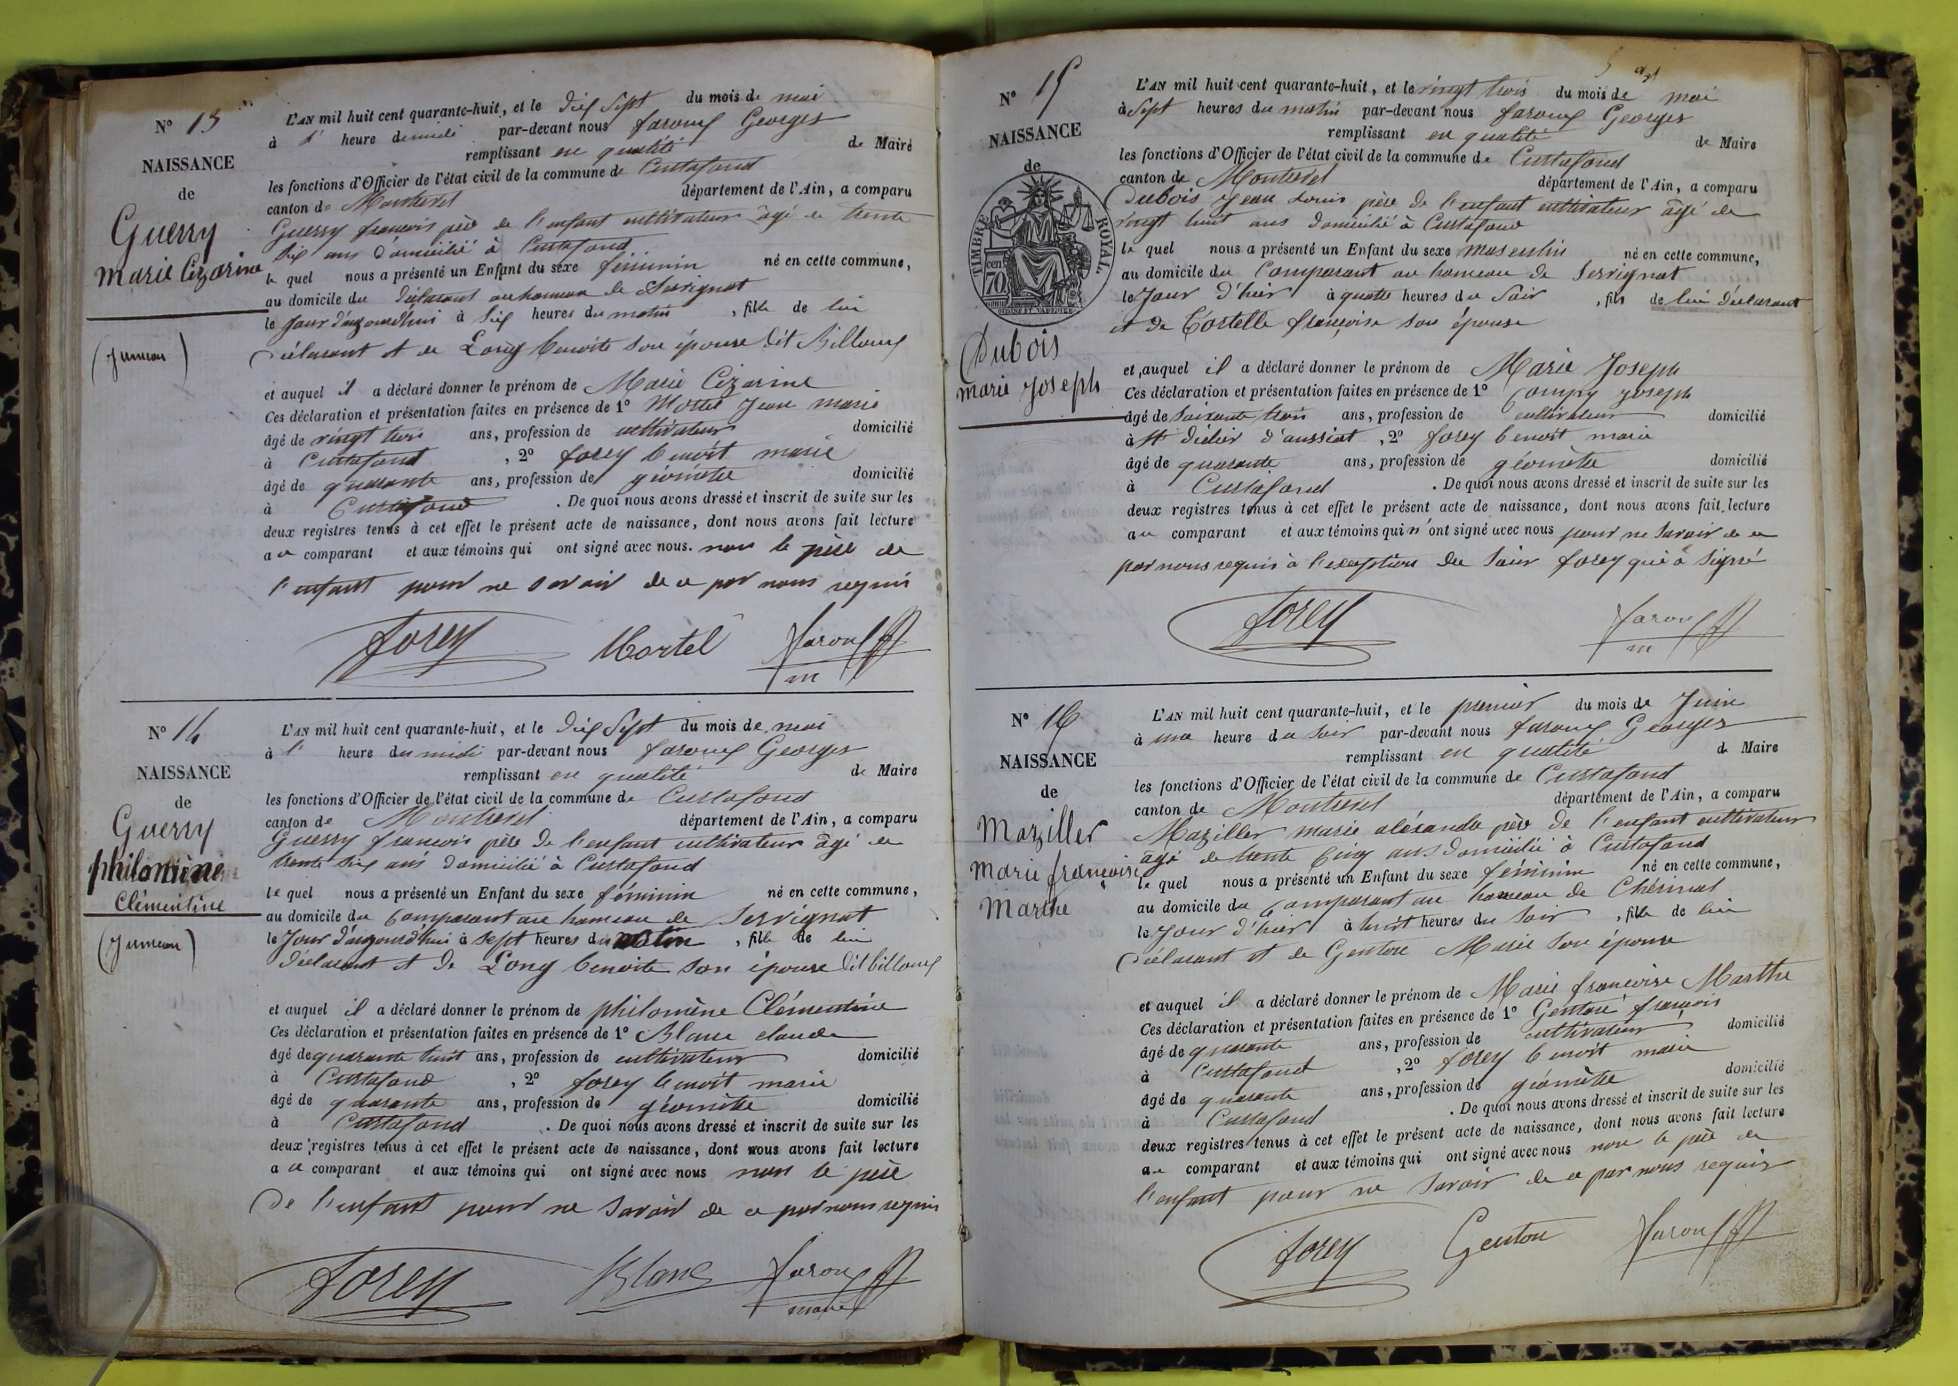 N° 13
NAISSANCE
de
Guerry
Marie Cizarine
(jumeau)
L'AN mil huit cent quarante-huit, et le dix sept du mois de mai
à 1 heure de midi par-devant nous faroux Georges
remplissant en qualité de Maire
les fonctions d'Officier de l'état civil de la commune de Curtafond
canton de Montrevel département de l'Ain, a comparu
Guerry francois père de l'enfant cultivateur âgé de trente
six ans domicilié à Curtafond
le quel nous a présenté un Enfant du sexe féminin né en cette commune,
au domicile du déclarant au hameau de Servignat
le Jour d'aujourd'hui à six heures du matin, fille de lui
déclarant et de Long benoite son épouse dit Billoux
et auquel il a déclaré donner le prénom de Marie Cizarine
Ces déclaration et présentation faites en présence de 1° Mortel Jean marie
âgé de vingt trois ans, profession de cultivateur domicilié
à Curtafond, 2° forey benoit marie
âgé de quarante ans, profession de géomètre domicilié
à Curtafond. De quoi nous avons dressé et inscrit de suite sur les
deux registres tenus à cet effet le présent acte de naissance, dont nous avons fait lecture
au comparant et aux témoins qui ont signé avec nous. non le père de
l'enfant pour ne savoir de ce par nous requis
forey Mortel faroux
m
N° 14
NAISSANCE
de
Guerry
philomène
Clémentine
(jumeau)
L'AN mil huit cent quarante-huit, et le dix sept du mois de mai
à 1 heure du midi par-devant nous faroux Georges
remplissant en qualité de Maire
les fonctions d'Officier de l'état civil de la commune de Curtafond
canton de Montrevel département de l'Ain, a comparu
Guerry francois père de l'enfant cultivateur âgé de
trente six ans domicilié à Curtafond
le quel nous a présenté un Enfant du sexe féminin né en cette commune,
au domicile du Comparant au hameau de Servignat
le Jour d'aujourd'hui à sept heures du matin, fille de lui
déclarant et de Long benoite son épouse dit billoux
et auquel il a déclaré donner le prénom de philomène Clémentine
Ces déclaration et présentation faites en présence de 1° Blanc claude
âgé de quarante huit ans, profession de cultivateur domicilié
à Curtafond, 2° forey benoit marie
âgé de quarante ans, profession de géomètre domicilié
à Curtafond. De quoi nous avons dressé et inscrit de suite sur les
deux registres tenus à cet effet le présent acte de naissance, dont nous avons fait lecture
au comparant et aux témoins qui ont signé avec nous non le père
De l'enfant pour ne savoir de ce par nous requis
forey Blanc faroux
maire
N° 15
NAISSANCE
de
TIMBRE ROYAL.
cen
70
Dubois
marie Joseph
L'AN mil huit cent quarante-huit, et le vingt trois du mois de mai
à Sept heures du matin par-devant nous faroux Georges
remplissant en qualité de Maire
les fonctions d'Officier de l'état civil de la commune de Curtafond
canton de Montrevel département de l'Ain, a comparu
Dubois Jean Louis père de l'enfant cultivateur âgé de
vingt huit ans domicilié à Curtafond
le quel nous a présenté un Enfant du sexe masculin né en cette commune,
au domicile du Comparant au hameau de Servignat
le Jour d'hier à quatre heures du Soir, fils de lui déclarant
et de Cortelle françoise son épouse
et auquel il a déclaré donner le prénom de Marie Joseph
Ces déclaration et présentation faites en présence de 1° Joseph
âgé de soixante trois ans, profession de cultivateur domicilié
à St didier d'aussiat, 2° forey benoit marie
âgé de quarante ans, profession de géomètre domicilié
à Curtafond. De quoi nous avons dressé et inscrit de suite sur les
deux registres tenus à cet effet le présent acte de naissance, dont nous avons fait lecture
au comparant et aux témoins qui n'ont signé avec nous pour ne savoir de ce
par nous requis à l'exception du Sieur forey qui a signé
forey faroux
m
N° 16
NAISSANCE
de
Maziller
Marie françoise
Marthe
L'AN mil huit cent quarante-huit, et le premier du mois de Juin
à une heure du soir par-devant nous faroux Georges
remplissant en qualité de Maire
les fonctions d'Officier de l'état civil de la commune de Curtafond
canton de Montrevel département de l'Ain, a comparu
Maziller marie alexandre père de l'enfant cultivateur
âgé de trente cinq ans domicilié à Curtafond
le quel nous a présenté un Enfant du sexe féminin né en cette commune,
au domicile du Comparant au hameau de Chérinal
le Jour d'hier à huit heures du Soir, fille de lui
déclarant et de Genton Marie son épouse
et auquel il a déclaré donner le prénom de Marie francoise Marthe
Ces déclaration et présentation faites en présence de 1° Genton françois
âgé de quarante ans, profession de cultivateur domicilié
à Curtafond, 2° forey benoit marie
âgé de quarante ans, profession de géomètre domicilié
à Curtafond. De quoi nous avons dressé et inscrit de suite sur les
deux registres tenus à cet effet le présent acte de naissance, dont nous avons fait lecture
au comparant et aux témoins qui ont signé avec nous non le père de
l'enfant pour ne savoir de ce par nous requis
forey Genton faroux